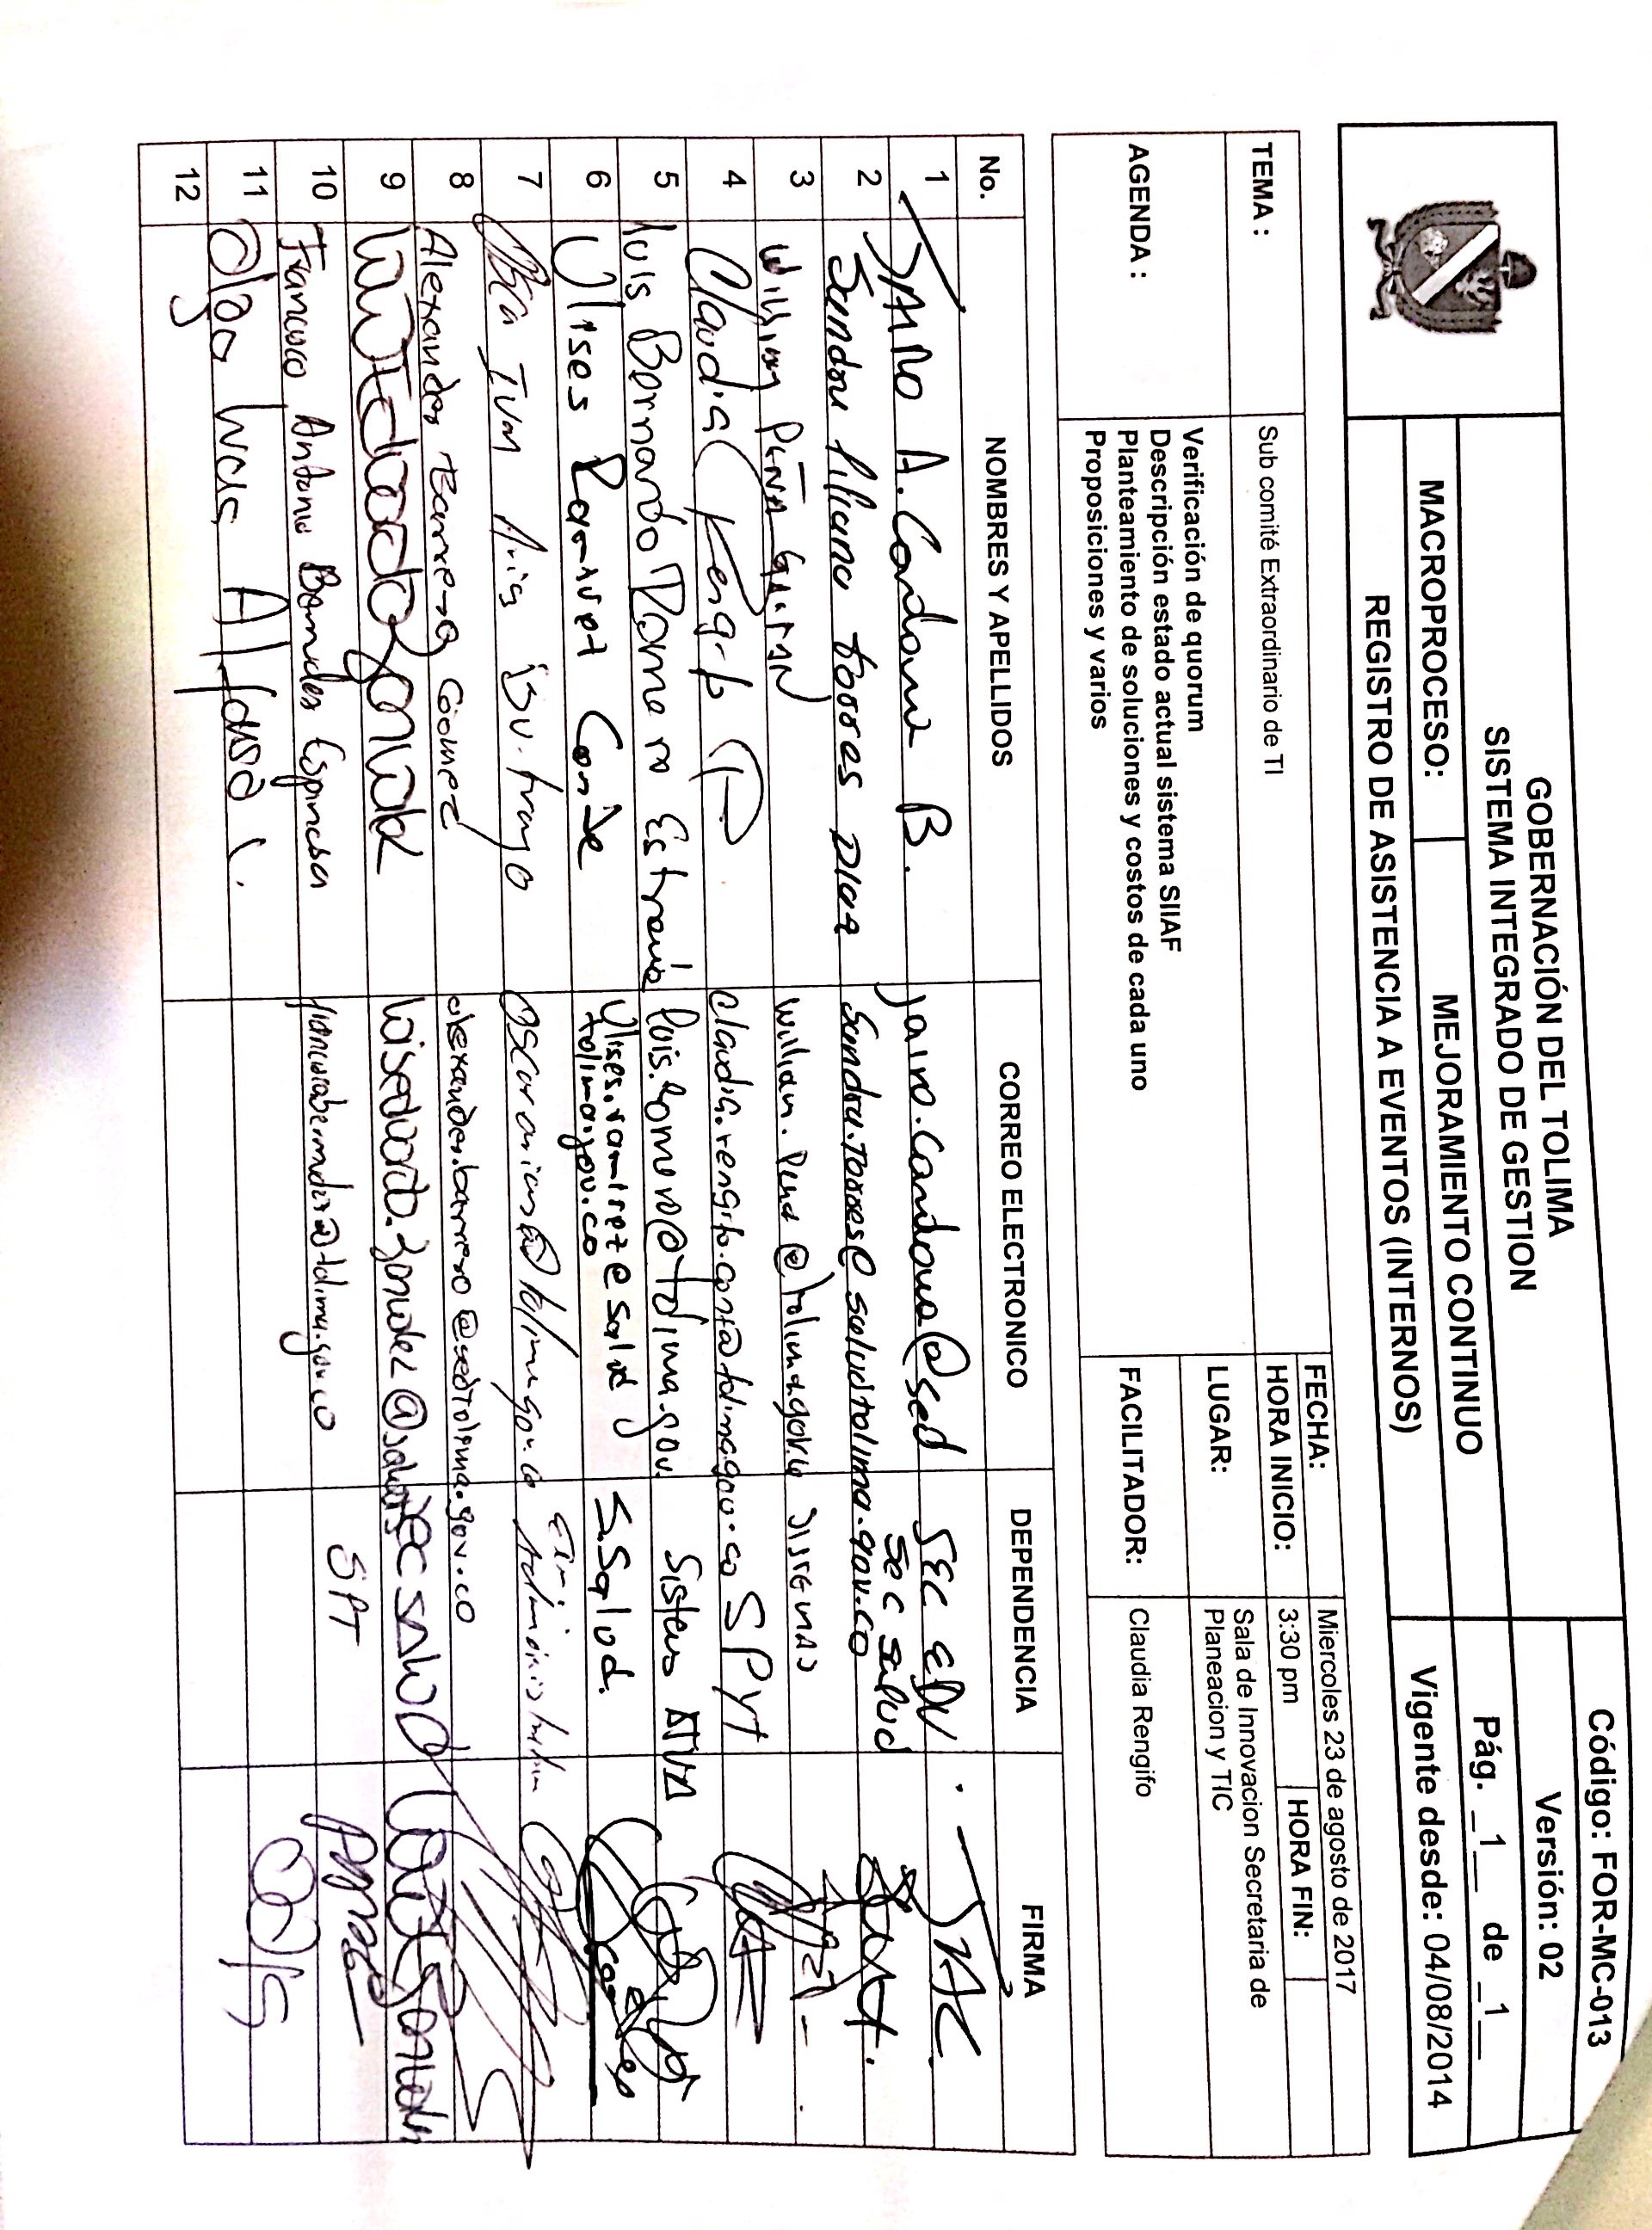 GOBERNACIÓN DEL TOLIMA
SISTEMA INTEGRADO DE GESTION
MACROPROCESO: MEJORAMIENTO CONTINUO
REGISTRO DE ASISTENCIA A EVENTOS (INTERNOS)
Código: FOR-MC-013
Versión: 02
Pág. _1__ de _1__
Vigente desde: 04/08/2014
TEMA : Sub comité Extraordinario de TI
FECHA: Miercoles 23 de agosto de 2017
HORA INICIO: 3:30 pm HORA FIN:
AGENDA : Verificación de quorum
Descripción estado actual sistema SIIAF
Planteamiento de soluciones y costos de cada uno
Proposiciones y varios
LUGAR: Sala de Innovacion Secretaria de
Planeacion y TIC
FACILITADOR: Claudia Rengifo
No. NOMBRES Y APELLIDOS CORREO ELECTRONICO DEPENDENCIA FIRMA
1 JAIRO A. Cardona B. jairo.cardona@sed SEC EDU. JAC.
2 Sandra Liliana Torres DIAZ Sandra.torres@saludtolima.gov.co Sec Salud
3 William PEÑA william.pena@tolima.gov.co SISTEMAS
4 Claudia Rengifo claudia.rengifo.conta@tolima.gov.co SPYT
5 Luis Bernardo Romero Estrada luis.romero@tolima.gov. Sistemas
6 Ulises Ramirez Conde Ulises.ramirez@salud
tolima.gov.co S.Salud.
7 Buitrago
8 Alexander Barrero Gomez alexander.barrero@sedtolima.gov.co
9 Luis Eduardo González luiseduardo.gonzalez@salud SEC SALUD
10 Francisco Antonio Bermudez Espinosa SPT
11 Olga Lucia Alfonso L.
12